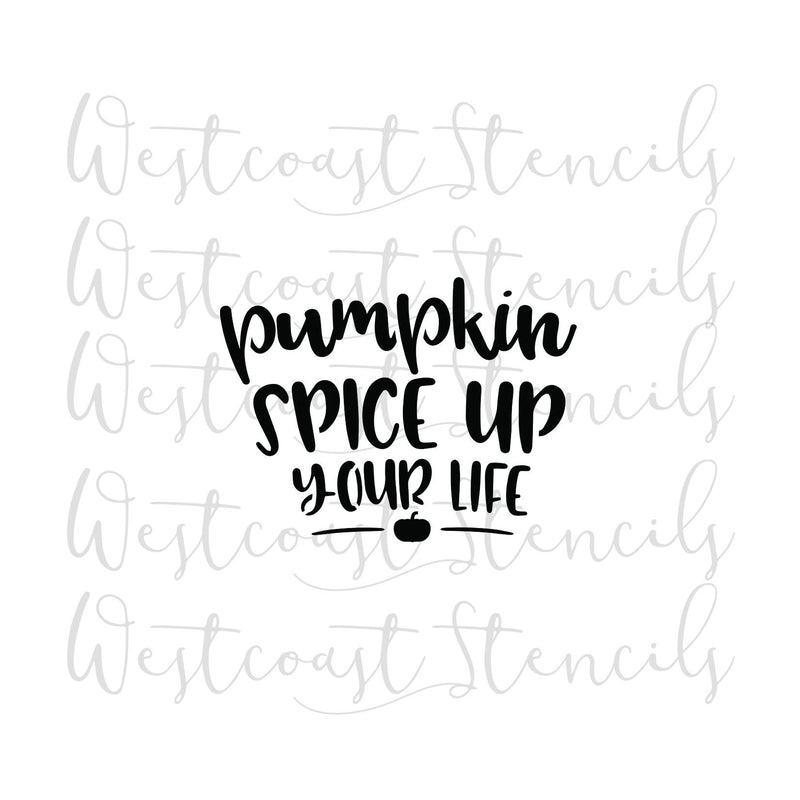 Westcoast Stencils
Westcoast Stencils
pumpkin
Westcoast Stencils
SPICE UP
YOUR LIFE
Westcoast Stencils
Westcoast Stencils